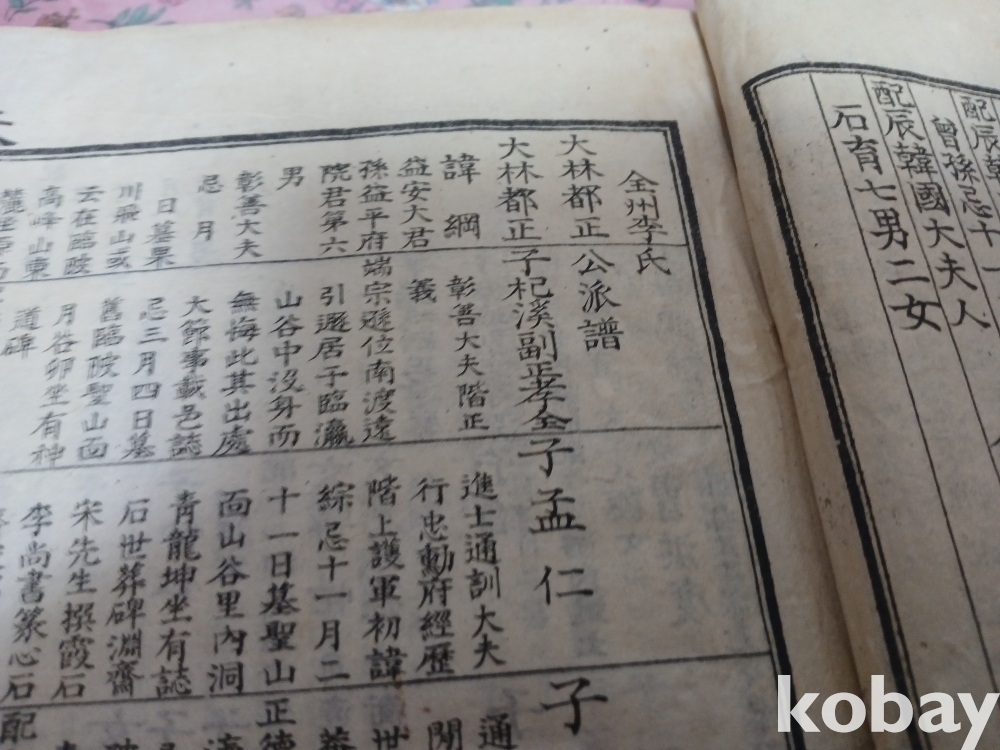 配辰韓
曾孫忌十一
配辰韓國大夫人
石育七男二女
全州李氏
大林都正公派譜
大林都正
諱綱
益安大君
孫益平府
院君第六
男
彰善大夫
忌月
日墓栗
川飛山或
云在臨陂
高峰山東
子杞溪副正孝仝
彰善大夫階正
義
端宗遜位南渡遠
引遯居于臨瀛
山谷中沒身而
無悔此其出處
大節事載邑誌
忌三月四日墓
舊臨陂聖山面
月谷卯坐有神
道碑
子孟仁
進士通訓大夫
行忠勳府經歷
階上護軍初諱
綜忌十一月二
十一日墓聖山
面山谷里內洞
靑龍坤坐有誌
石世葬碑淵齋
宋先生撰霞石
李尚書篆心石
子
通
閒
世
正德
配
kobay